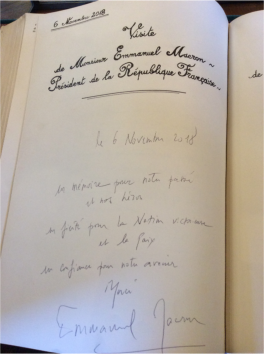 6 Novembre 2018
Visite
de Monsieur Emmanuel Macron ~
Président de la République Française ~
le 6 Novembre 2018
en mémoire pour notre passé
et nos héros
en fierté pour la Nation
et la Paix
en confiance pour notre avenir
Merci
Emmanuel Macron
de